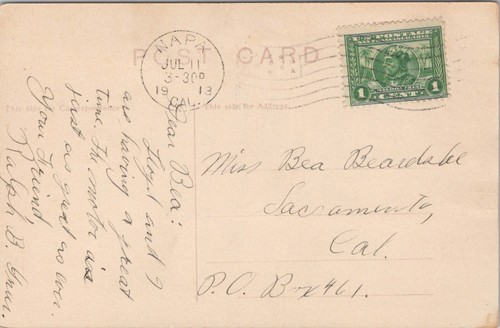 POST CARD
NAPA
JUL 11
3-30P
1913
CAL.
U.S. POSTAGE
1 CENT 1
This side for Address.
Dear Bea:
Lloyd and I
are having a great
time. The motor is
just as great as ever.
Your Friend,
Ralph B.
Miss Bea Beardslee
Sacramento,
Cal.
P.O. Box 461.